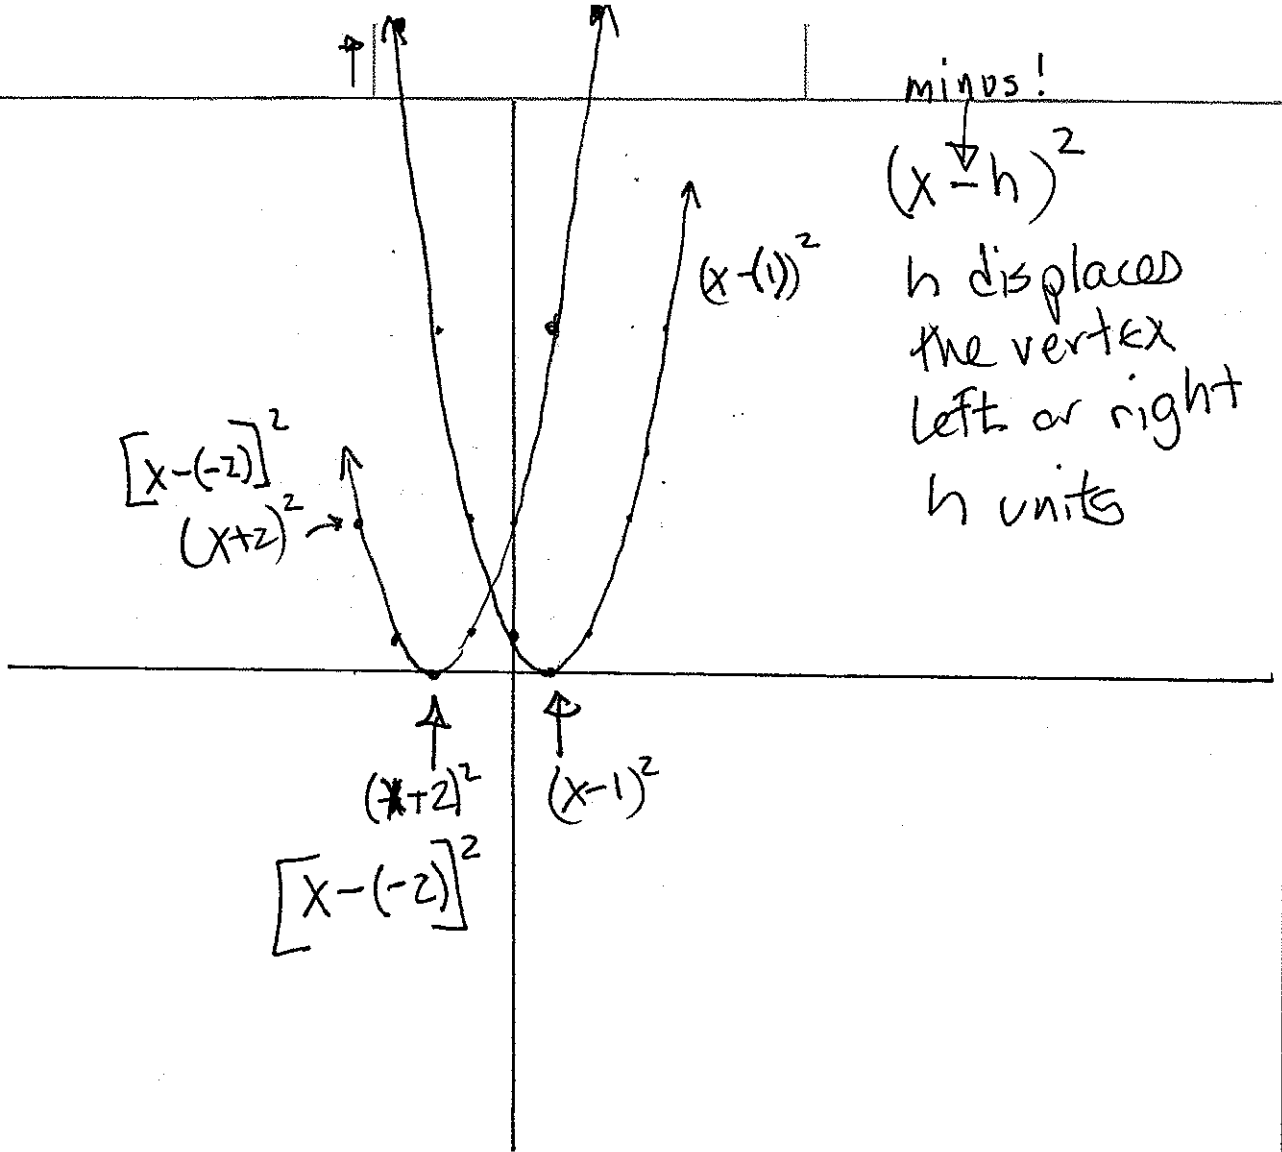 minus!
(x-h)²
h displaces
the vertex
left or right
h units
(x-(1))²
[x-(-2)]²
(x+2)²
(x+2)²
[x-(-2)]²
(x-1)²